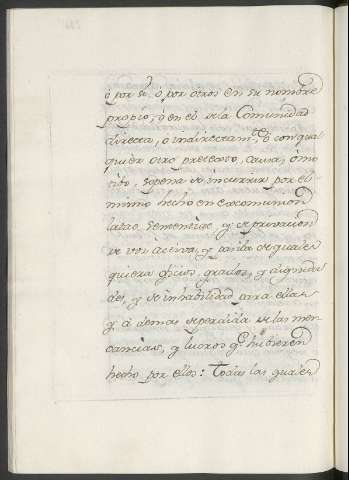 ó por sí, ó por otros en su nombre
propio, ó en el de la Comunidad
directa, o indirectam.te ó con qual
quier otro pretexto, causa, ó mo
tibo, sopena de incurrir por el
mismo hecho en excomunion
latae sententiae, y de privacion
de voz àctiva, y pasiva de quales
quiera oficios, grados, y dignida
des, y de inhabilidad para ellas
y á demas de perdida de las mer
cancias, y lucros q.e hubieren
hecho por ellos: Todas las quales